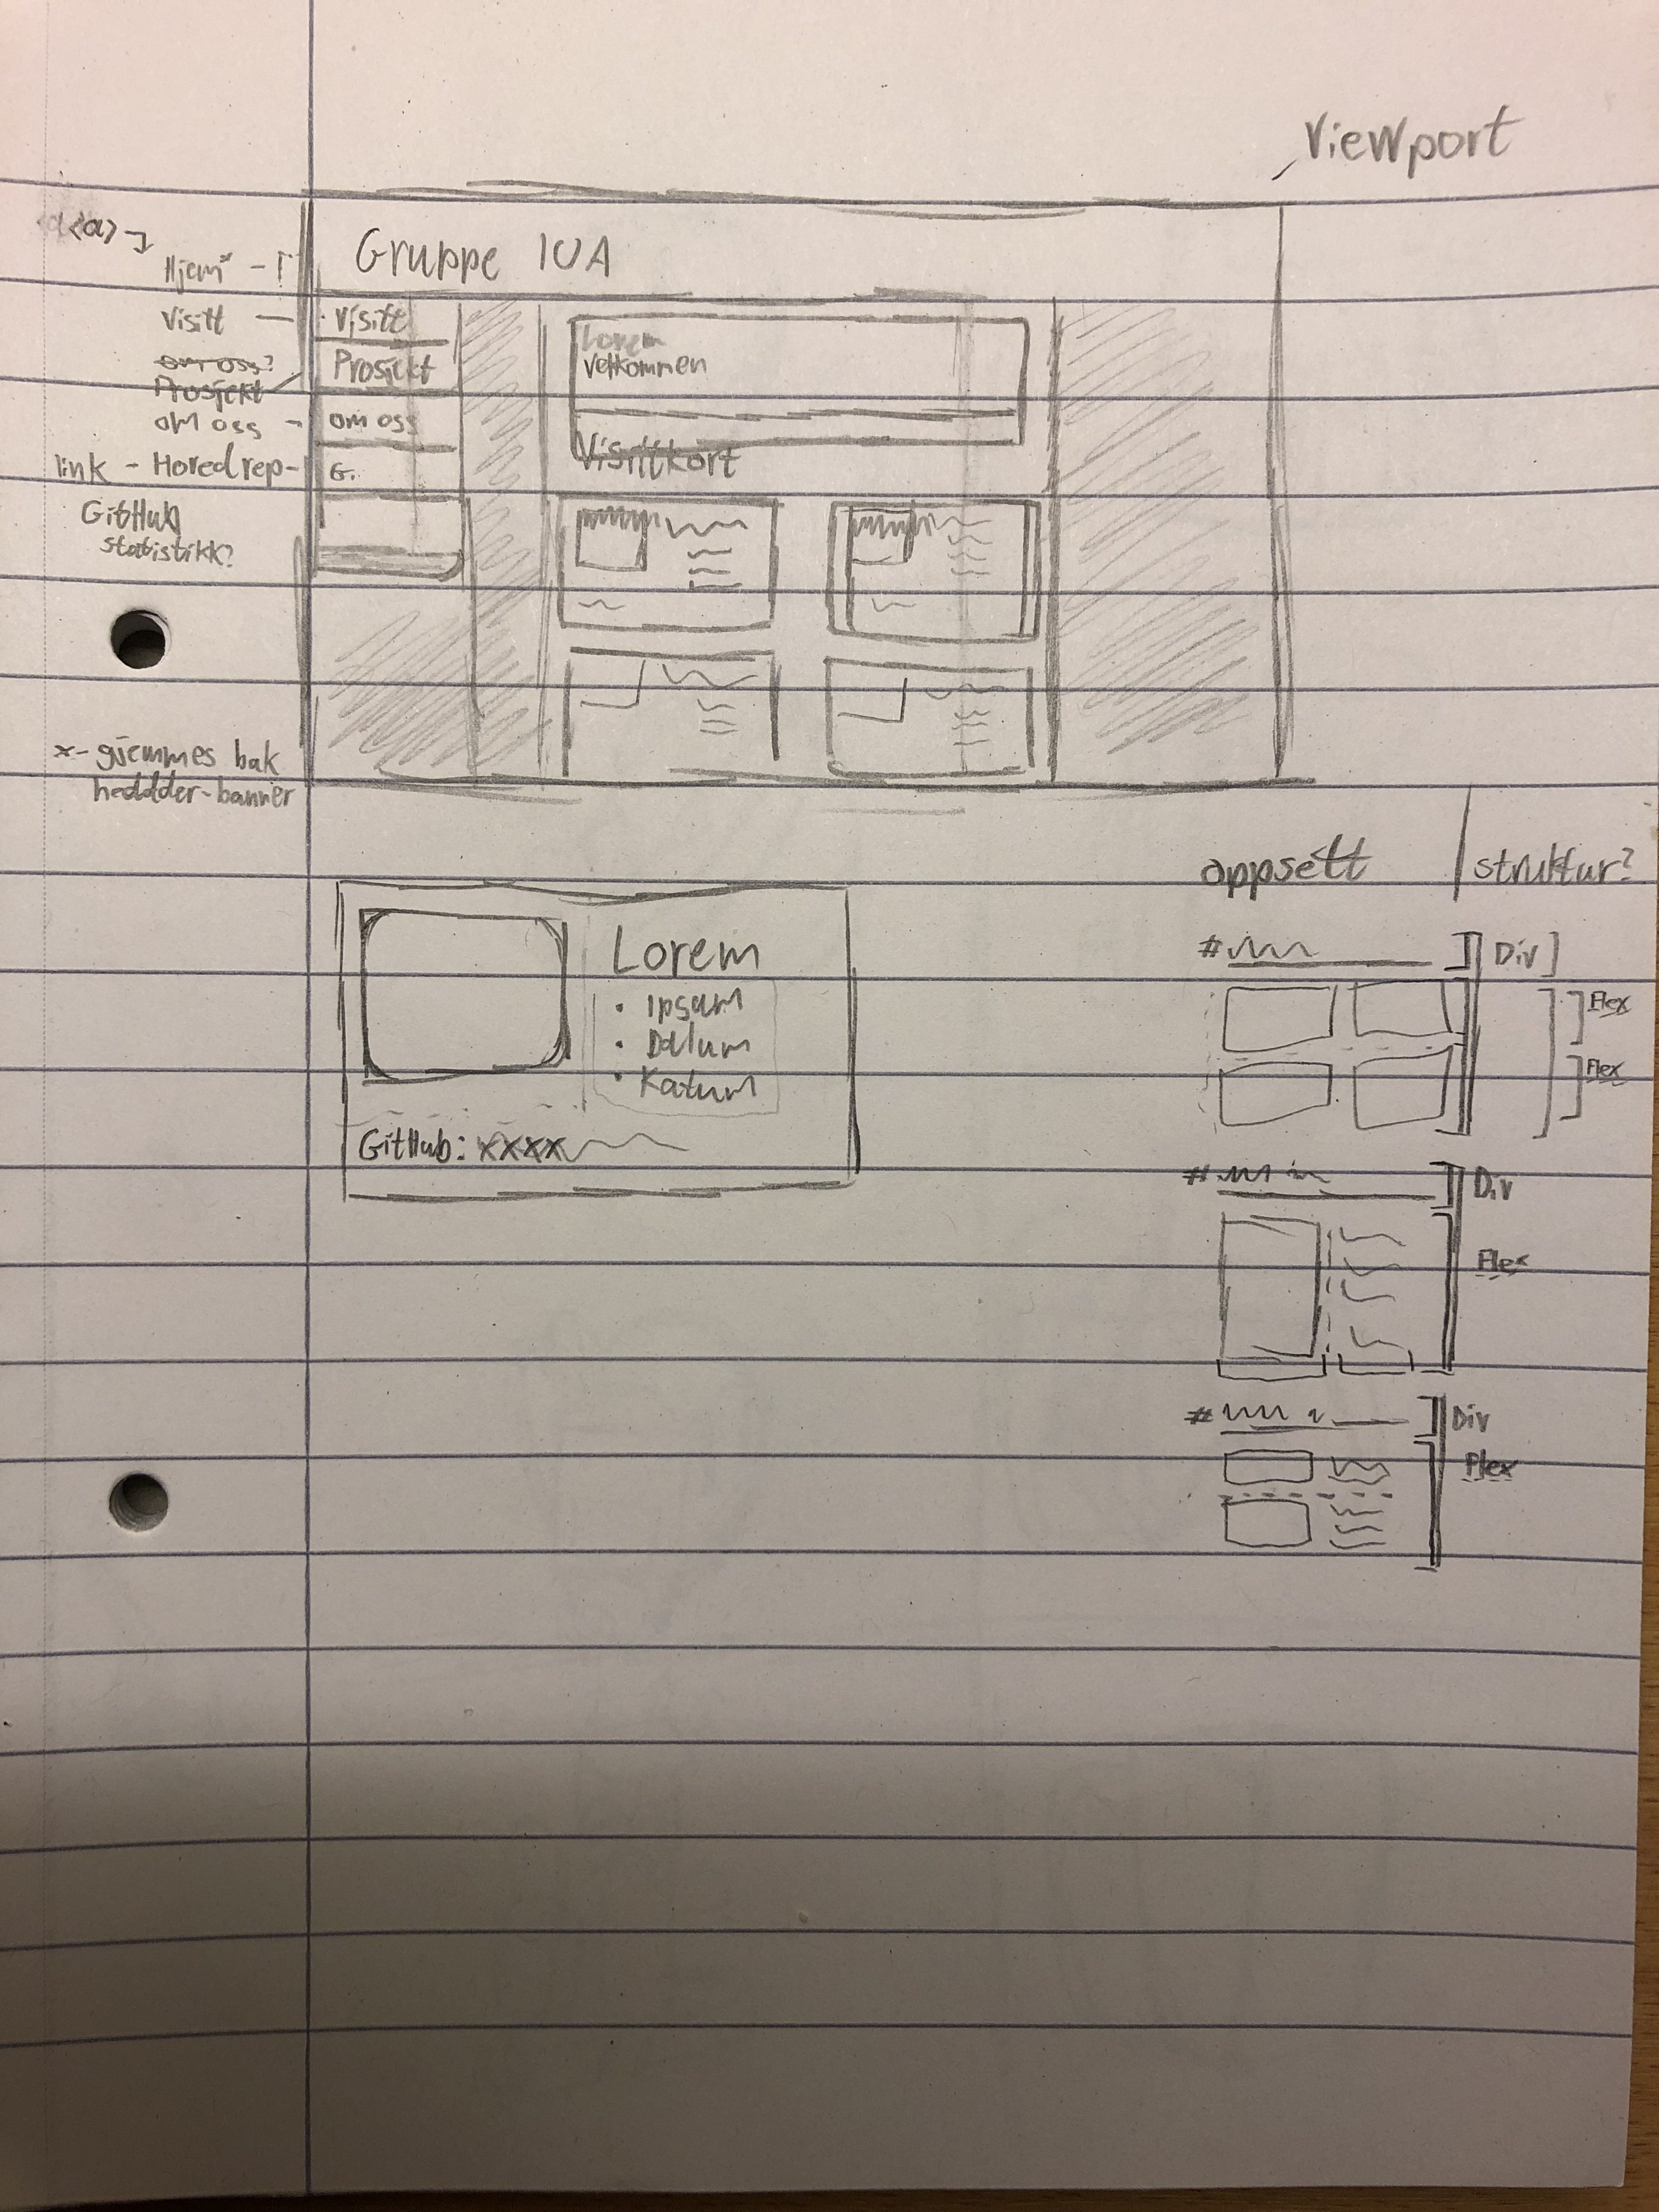 Viewport
<a>
Hjem* -
Gruppe 10A
Visitt —
om oss?
Prosjekt
om oss -
link - Hovedrep-
GitHub
statistikk?
x- gjemmes bak
heddder-banner
Visitt
Prosjekt
om oss
G.
Lorem
Velkommen
Visittkort
Lorem
• Ipsum
• Dolum
• Katum
GitHub: xxxx
oppsett | struktur?
# Div
Flex
Flex
# Div
Flex
# Div
Flex